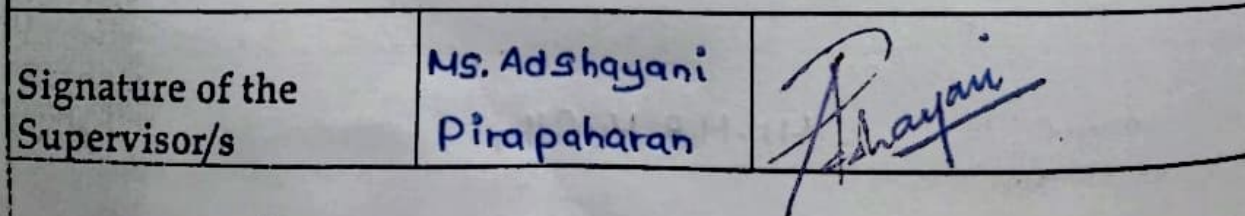 Signature of the
Supervisor/s
Ms. Adshayani
Pirapaharan
Adshayani